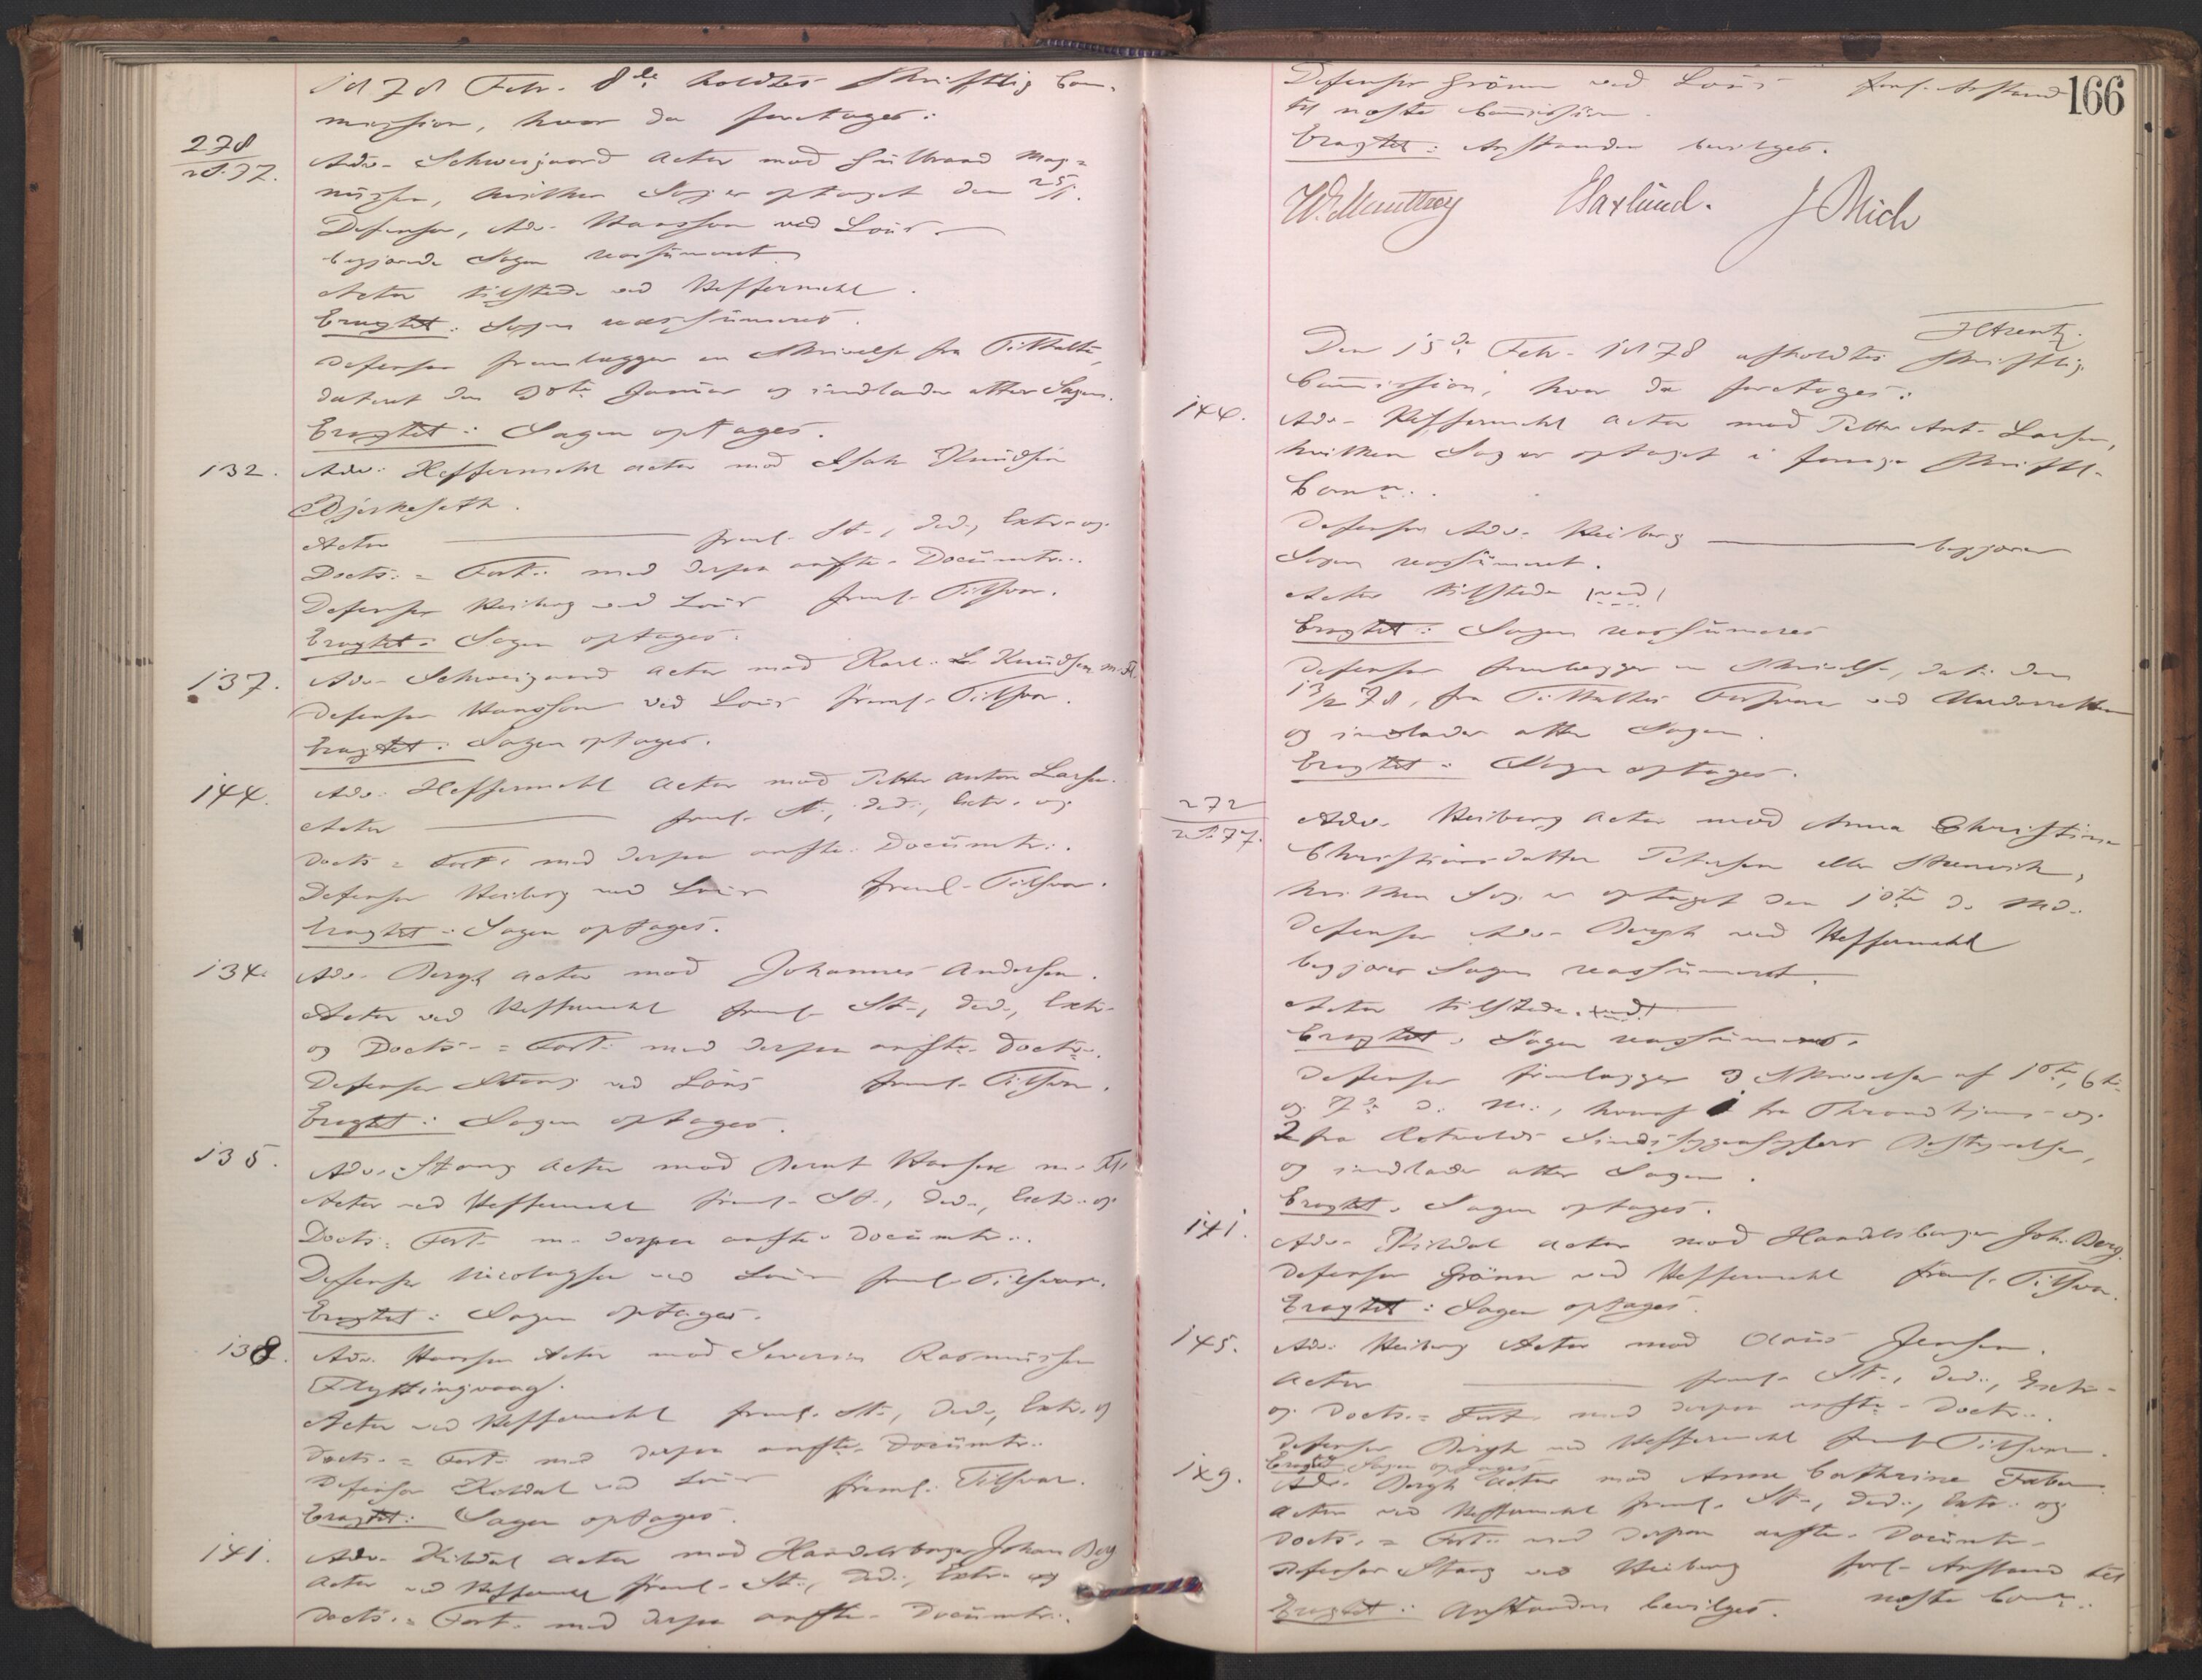 1878 Febr. 8de holdtes skriftlig Com-
mission, hvor da foretoges:
278
/2S.77.
Adv. Schweigaard Actor mod Gulbrand Mag-
nussen, hvilken Sag er optaget den 25/1.
Defensor, Adv. Hansson ved Lous
begjærede Sagen reassumeret
Actor tilstede ved Heffermehl.
Eragtet: Sagen reassumeres.
Defensor fremlægger en Skrivelse fra Tiltalte,
dateret den 30te Januar og indlader atter Sagen.
Eragtet: Sagen optages.
132.
Adv. Heffermehl Actor mod Isak Knudsen
Bjerkesæth.
Actor freml. St., Ded., Extr. og
Docts. = Fort. med derpaa anfte. Documtr.
Defensor Heiberg ved Lous freml. Tilsvar.
Eragtet: Sagen optages.
137.
Adv. Schweigaard Actor mod Karl L. Knudsen m. Fl.
Defensor Hansson ved Lous freml. Tilsvar.
Eragtet: Sagen optages.
144.
Adv. Heffermehl Actor mod Petter Anton Larsen.
Actor freml. St., Ded., Extr. og
Docts = Fort. med derpaa anfte. Documtr.
Defensor Heiberg ved Lous freml. Tilsvar.
Eragtet: Sagen optages.
134.
Adv. Bergh Actor mod Johannes Andersen.
Actor ved Heffermehl freml. St., Ded., Extr.
og Docts. = Fort. med derpaa anfte. Doctr.
Defensor Stang ved Lous freml. Tilsvar.
Eragtet: Sagen optages.
135.
Adv. Stang Actor mod Bernt Hansen m. Fl.
Actor ved Heffermehl freml. St., Ded., Extr. og
Docts. = Fort. m. derpaa anfte. Documtr.
Defensor Nicolaysen ved Lous freml. Tilsvar.
Eragtet: Sagen optages.
138.
Adv. Hansson Actor mod Severin Rasmussen
Flyttingvaag.
Actor ved Heffermehl freml. St., Ded., Extr. og
Docts. = Fort. med derpaa anfte. Documtr.
Defensor Kildal ved Lous freml. Tilsvar.
Eragtet: Sagen optages.
141.
Adv. Kildal Actor mod Handelsborger Johan Berg
Actor ved Heffermehl freml. St., Ded., Extr. og
Docts. = Fort. med derpaa anfte. Documtr.
166
Defensor Grönn ved Lous forl. Anstand
til næste Commission.
Eragtet: Anstanden bevilges.
J Mich
Den 15de Febr. 1878 afholdtes skriftlig
Commission, hvor da foretoges:
144.
Adv. Heffermehl Actor mod Petter Ant. Larsen,
hvilken Sag er optaget i forrige skriftl.
Comm.
Defensor Adv. Heiberg begjærer
Sagen reassumeret.
Actor tilstede (ved)
Eragtet: Sagen reassumeres
Defensor fremlægger en Skrivelse, dat. den
13/2 78, fra Tiltaltes Forsvarer ved Underretten
og indlader atter Sagen.
Eragtet: Sagen optages.
272
/2S.77.
Adv. Heiberg Actor mod Anna Christine
Christiansdatter Petersen eller Steenvik,
hvilken Sag er optaget den 10te d. Md.
Defensor Adv. Bergh ved Heffermehl
begjærer Sagen reassumeret.
Actor tilstede. ved!
Eragtet: Sagen reassumeres.
Defensor fremlægger 3 Skrivelser af 1ste, 6te
og 7de d. M., hvoraf 1 fra Throndhjems og
2 fra Rotvolds Sindssygeasyls Bestyrelse,
og indlader atter Sagen.
Eragtet. Sagen optages.
141.
Adv. Kildal Actor mod Handelsborger Joh. Berg.
Defensor Grönn ved Heffermehl freml. Tilsvar.
Eragtet: Sagen optages.
145.
Adv. Heiberg Actor mod Claus Jensen.
Actor freml. St., Ded., Extr.
og Docts. = Fort. med derpaa anfte. Doctr.
Defensor Bergh ved Heffermehl freml. Tilsvar.
Eragtet Sagen optages
149.
Adv. Bergh Actor mod Anne Cathrine Faber
Actor ved Heffermehl freml. St., Ded., Extr. og
Docts. = Fort. med derpaa anfte. Documtr.
Defensor Stang ved Heiberg forl. Anstand til
Eragtet: Anstanden bevilges. næste Comm.